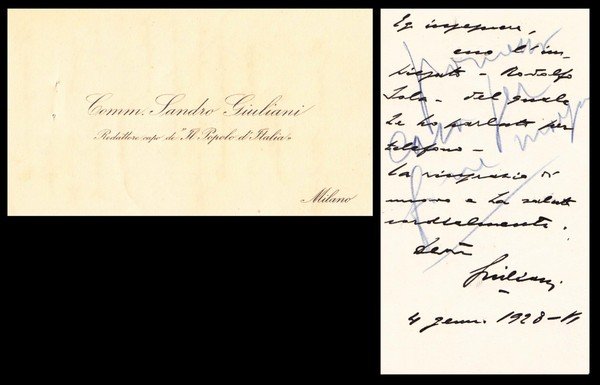 Comm. Sandro Giuliani
Redattore capo de "Il Popolo d'Italia"
Milano
Eg. ingegnere,
ecco l'im-
piegato - Rodolfo
Sola - del quale
Le ho parlato per
telefono -
La ringrazio di
nuovo e La saluto
cordialmente.
Giuliani
4 genn. 1928-VI